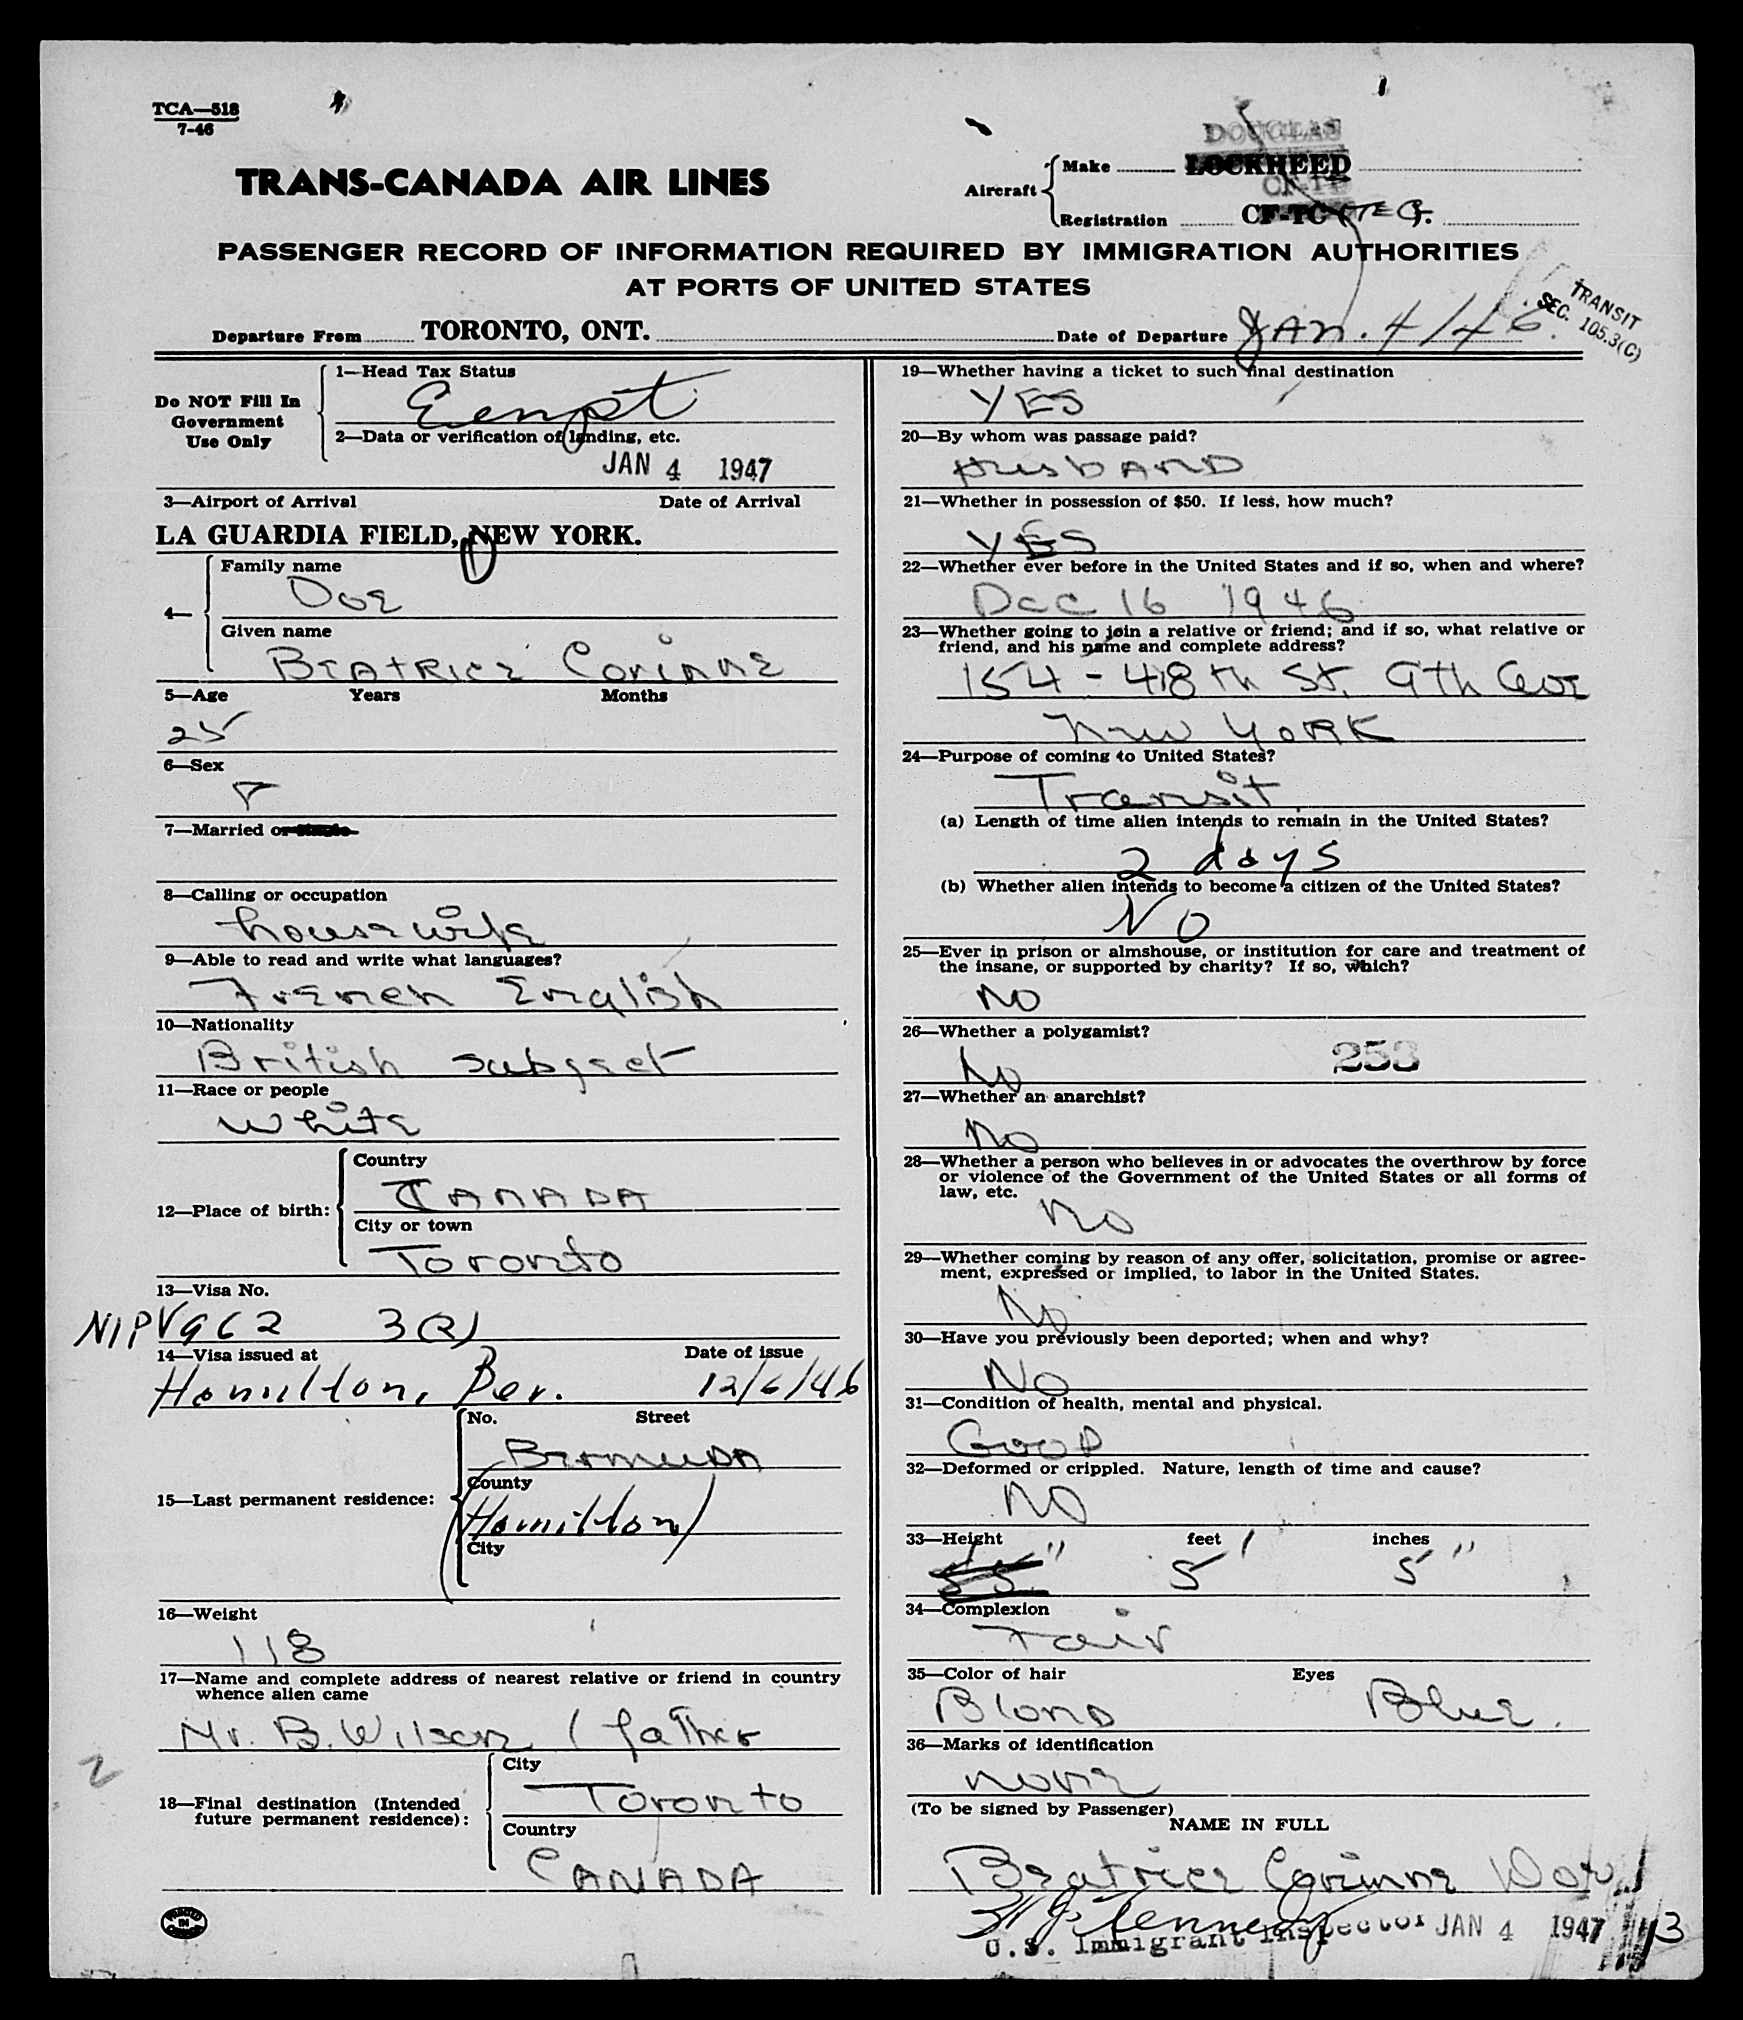 TCA—518
7-46
TRANS-CANADA AIR LINES
Aircraft
Make
DOUGLAS
LOCKHEED
Registration
CF-TC
TEG.
PASSENGER RECORD OF INFORMATION REQUIRED BY IMMIGRATION AUTHORITIES
AT PORTS OF UNITED STATES
TRANSIT
SEC. 105.3(C)
Departure From TORONTO, ONT. Date of Departure JAN. 4/46.
Do NOT Fill In
Government
Use Only
1—Head Tax Status
Eempt
2—Data or verification of landing, etc.
JAN 4 1947
3—Airport of Arrival Date of Arrival
LA GUARDIA FIELD, NEW YORK.
4—
Family name
Doe
Given name
Beatrice Corinne
5—Age Years Months
25
6—Sex
F
7—Married or single
8—Calling or occupation
housewife
9—Able to read and write what languages?
French English
10—Nationality
British subject
11—Race or people
white
12—Place of birth:
Country
CANADA
City or town
Toronto
13—Visa No.
NIPV962 3(2)
14—Visa issued at Date of issue
Hamilton, Ber. 12/6/46
15—Last permanent residence:
No. Street
BermuDA
County
(Hamilton)
City
16—Weight
118
17—Name and complete address of nearest relative or friend in country
whence alien came
Mr. B. Wilson (father
2
18—Final destination (Intended
future permanent residence):
City
Toronto
Country
CANADA
PRINTED IN CANADA
19—Whether having a ticket to such final destination
YES
20—By whom was passage paid?
HusbAND
21—Whether in possession of $50. If less, how much?
YES
22—Whether ever before in the United States and if so, when and where?
Dec 16 1946
23—Whether going to join a relative or friend; and if so, what relative or
friend, and his name and complete address?
154 - 48th St. 9th Ave
New YORK
24—Purpose of coming to United States?
Transit
(a) Length of time alien intends to remain in the United States?
2 days
(b) Whether alien intends to become a citizen of the United States?
NO
25—Ever in prison or almshouse, or institution for care and treatment of
the insane, or supported by charity? If so, which?
NO
26—Whether a polygamist?
No
253
27—Whether an anarchist?
No
28—Whether a person who believes in or advocates the overthrow by force
or violence of the Government of the United States or all forms of
law, etc.
No
29—Whether coming by reason of any offer, solicitation, promise or agree-
ment, expressed or implied, to labor in the United States.
No
30—Have you previously been deported; when and why?
No
31—Condition of health, mental and physical.
GooD
32—Deformed or crippled. Nature, length of time and cause?
NO
33—Height feet inches
5'5" 5' 5"
34—Complexion
Fair
35—Color of hair Eyes
BlonD Blue.
36—Marks of identification
none
(To be signed by Passenger)
NAME IN FULL
Beatrice Corinne Doe
U.S. Immigrant Inspector JAN 4 1947
13